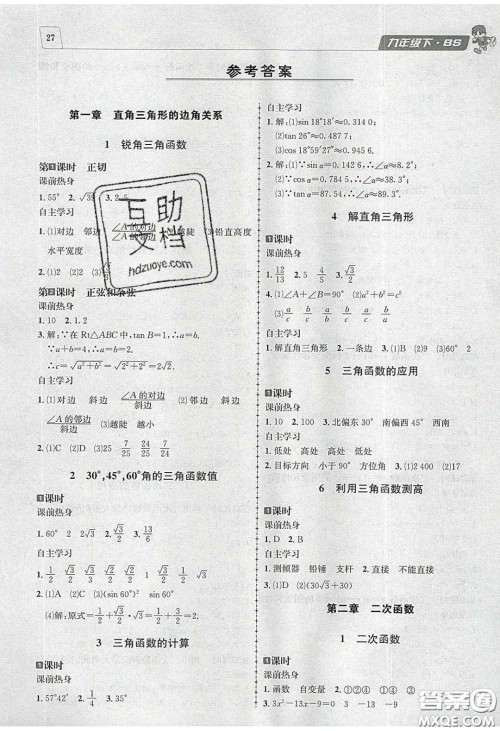 27
九年级下·BS
参考答案
第一章 直角三角形的边角关系
1 锐角三角函数
第1课时 正切
课前热身
1.55° 2.√33
自主学习
1.(1)对边 邻边 ∠A的对边 铅直高度
水平宽度
1.(1)2 (2)2
互助文档
hdzuoye.com
第2课时 正弦和余弦
课前热身
1.10 2.1.2
3.解:∵在Rt△ABC中,tan B=1,∴a=b.
∵a²+b²=c²,a=b=√2,
∴c=√(a²+b²)=√(√2²+√2²)=2.
自主学习
1.(1)对边 斜边 ∠A的对边/斜边 (2)邻边 斜边
∠A的邻边/斜边 (3)越陡 越小
2.(1)C (2)D 25 7/25 24/25 7/24
2 30°,45°,60°角的三角函数值
1课时
课前热身
1.60° 2 2√3 2.√3/2 3.√13/6
自主学习
2.(1)A (2)C (3)(sin 60°)² sin 60²
3 三角函数的计算
1课时
课前热身
1.57°42′ 2.1/4 3.35°
自主学习
1.解:(1)sin 18°18′≈0.314 0;
(2)tan 26°≈0.487 7;
(3)cos 18°59′27″≈0.945 6.
2.解:(1)∵sin a=0.142 6,∴a≈8.2°;
(2)∵cos a=0.154 3,∴a≈81.1°;
(3)∵tan a=8.435 0,∴a≈83.2°.
4 解直角三角形
1课时
课前热身
1.12/13 2.5 4/5 3.√3/2
自主学习
1.(1)∠A+∠B=90° (2)a²+b²=c²
(3)a/c b/c a/b b/c a/c b/a
2.解直角三角形 一条边 3.(1)B (2)9 (3)60° 2
5 三角函数的应用
1课时
课前热身
1.低 高 2.100 3.北偏东30° 南偏西45° 南
自主学习
2.目标方向 小于90° 方位角 4.(1)C (2)B
6 利用三角函数测高
1课时
课前热身
1.D 2.B
自主学习
1.测倾器 铅锤 支杆 2.直接 不能直接
3.(1)D (2)(30√3+30)
第二章 二次函数
1 二次函数
1课时
课前热身
1.函数 自变量 2.①②④ ①④
3.3x²-13x-9 3 -13 -9
答案圈
MXQE.COM